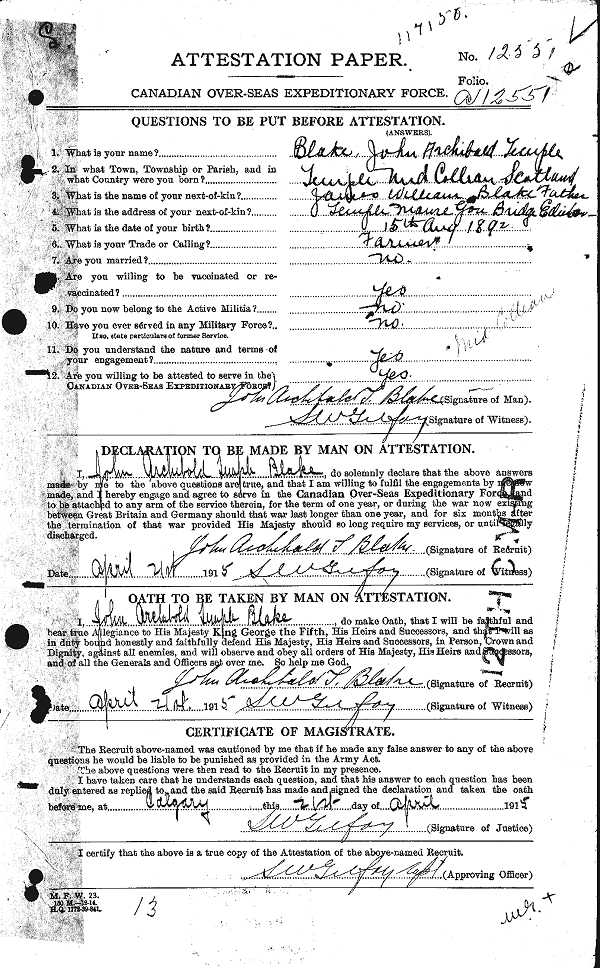 117150.
ATTESTATION PAPER.
No. 12551
Folio.
CANADIAN OVER-SEAS EXPEDITIONARY FORCE.
QUESTIONS TO BE PUT BEFORE ATTESTATION.
(ANSWERS).
1. What is your name? Blake, John Archibald Temple
2. In what Town, Township or Parish, and in
what Country were you born? Temple Mid Scotland
3. What is the name of your next-of-kin? James William Blake Father
4. What is the address of your next-of-kin? Temple Bridge
5. What is the date of your birth? 15th Aug 1892
6. What is your Trade or Calling? Farmer
7. Are you married? no.
Are you willing to be vaccinated or re-
vaccinated? Yes
9. Do you now belong to the Active Militia? no
10. Have you ever served in any Military Force? no.
If so, state particulars of former Service.
11. Do you understand the nature and terms of
your engagement? Yes
12. Are you willing to be attested to serve in the
CANADIAN OVER-SEAS EXPEDITIONARY FORCE? Yes.
John Archibald T. Blake (Signature of Man).
(Signature of Witness).
DECLARATION TO BE MADE BY MAN ON ATTESTATION.
I, John Archibold Temple Blake, do solemnly declare that the above answers
made by me to the above questions are true, and that I am willing to fulfil the engagements by me now
made, and I hereby engage and agree to serve in the Canadian Over-Seas Expeditionary Force, and
to be attached to any arm of the service therein, for the term of one year, or during the war now existing
between Great Britain and Germany should that war last longer than one year, and for six months after
the termination of that war provided His Majesty should so long require my services, or until legally
discharged.
John Archibald T. Blake (Signature of Recruit)
Date April 21st 1915 (Signature of Witness)
OATH TO BE TAKEN BY MAN ON ATTESTATION.
I, John Archibold Temple Blake, do make Oath, that I will be faithful and
bear true Allegiance to His Majesty King George the Fifth, His Heirs and Successors, and that I will as
in duty bound honestly and faithfully defend His Majesty, His Heirs and Successors, in Person, Crown and
Dignity, against all enemies, and will observe and obey all orders of His Majesty, His Heirs and Successors,
and of all the Generals and Officers set over me. So help me God.
John Archibald T. Blake (Signature of Recruit)
Date April 21st. 1915 (Signature of Witness)
CERTIFICATE OF MAGISTRATE.
The Recruit above-named was cautioned by me that if he made any false answer to any of the above
questions he would be liable to be punished as provided in the Army Act.
The above questions were then read to the Recruit in my presence.
I have taken care that he understands each question, and that his answer to each question has been
duly entered as replied to, and the said Recruit has made and signed the declaration and taken the oath
before me, at Calgary this 21st day of April 1915
(Signature of Justice)
I certify that the above is a true copy of the Attestation of the above-named Recruit.
(Approving Officer)
M. F. W. 23.
H.Q. 1772-39-841.
13